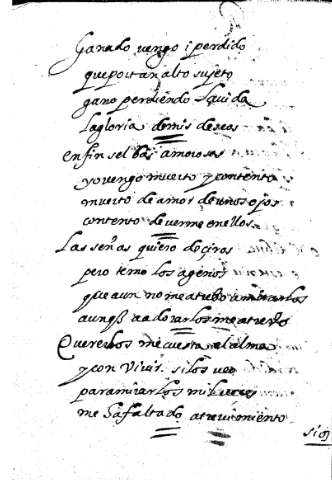 Ganado vengo i perdido
que por tan alto sujeto
gano perdiendo la vida
la gloria de mis deseos
en fin selbas amorosas
yo vengo muerto y contento
muerto de amor de unos ojos
contento de verme en ellos
Las señas quiero deçiros
pero temo los agenos
que aun no me atrebo a mirarlos
aunq̃ a adorarlos me atrebo
Quererlos me cuesta el alma
y con vivir si los veo
para mirarlos mil veces
me a faltado atrevimiento